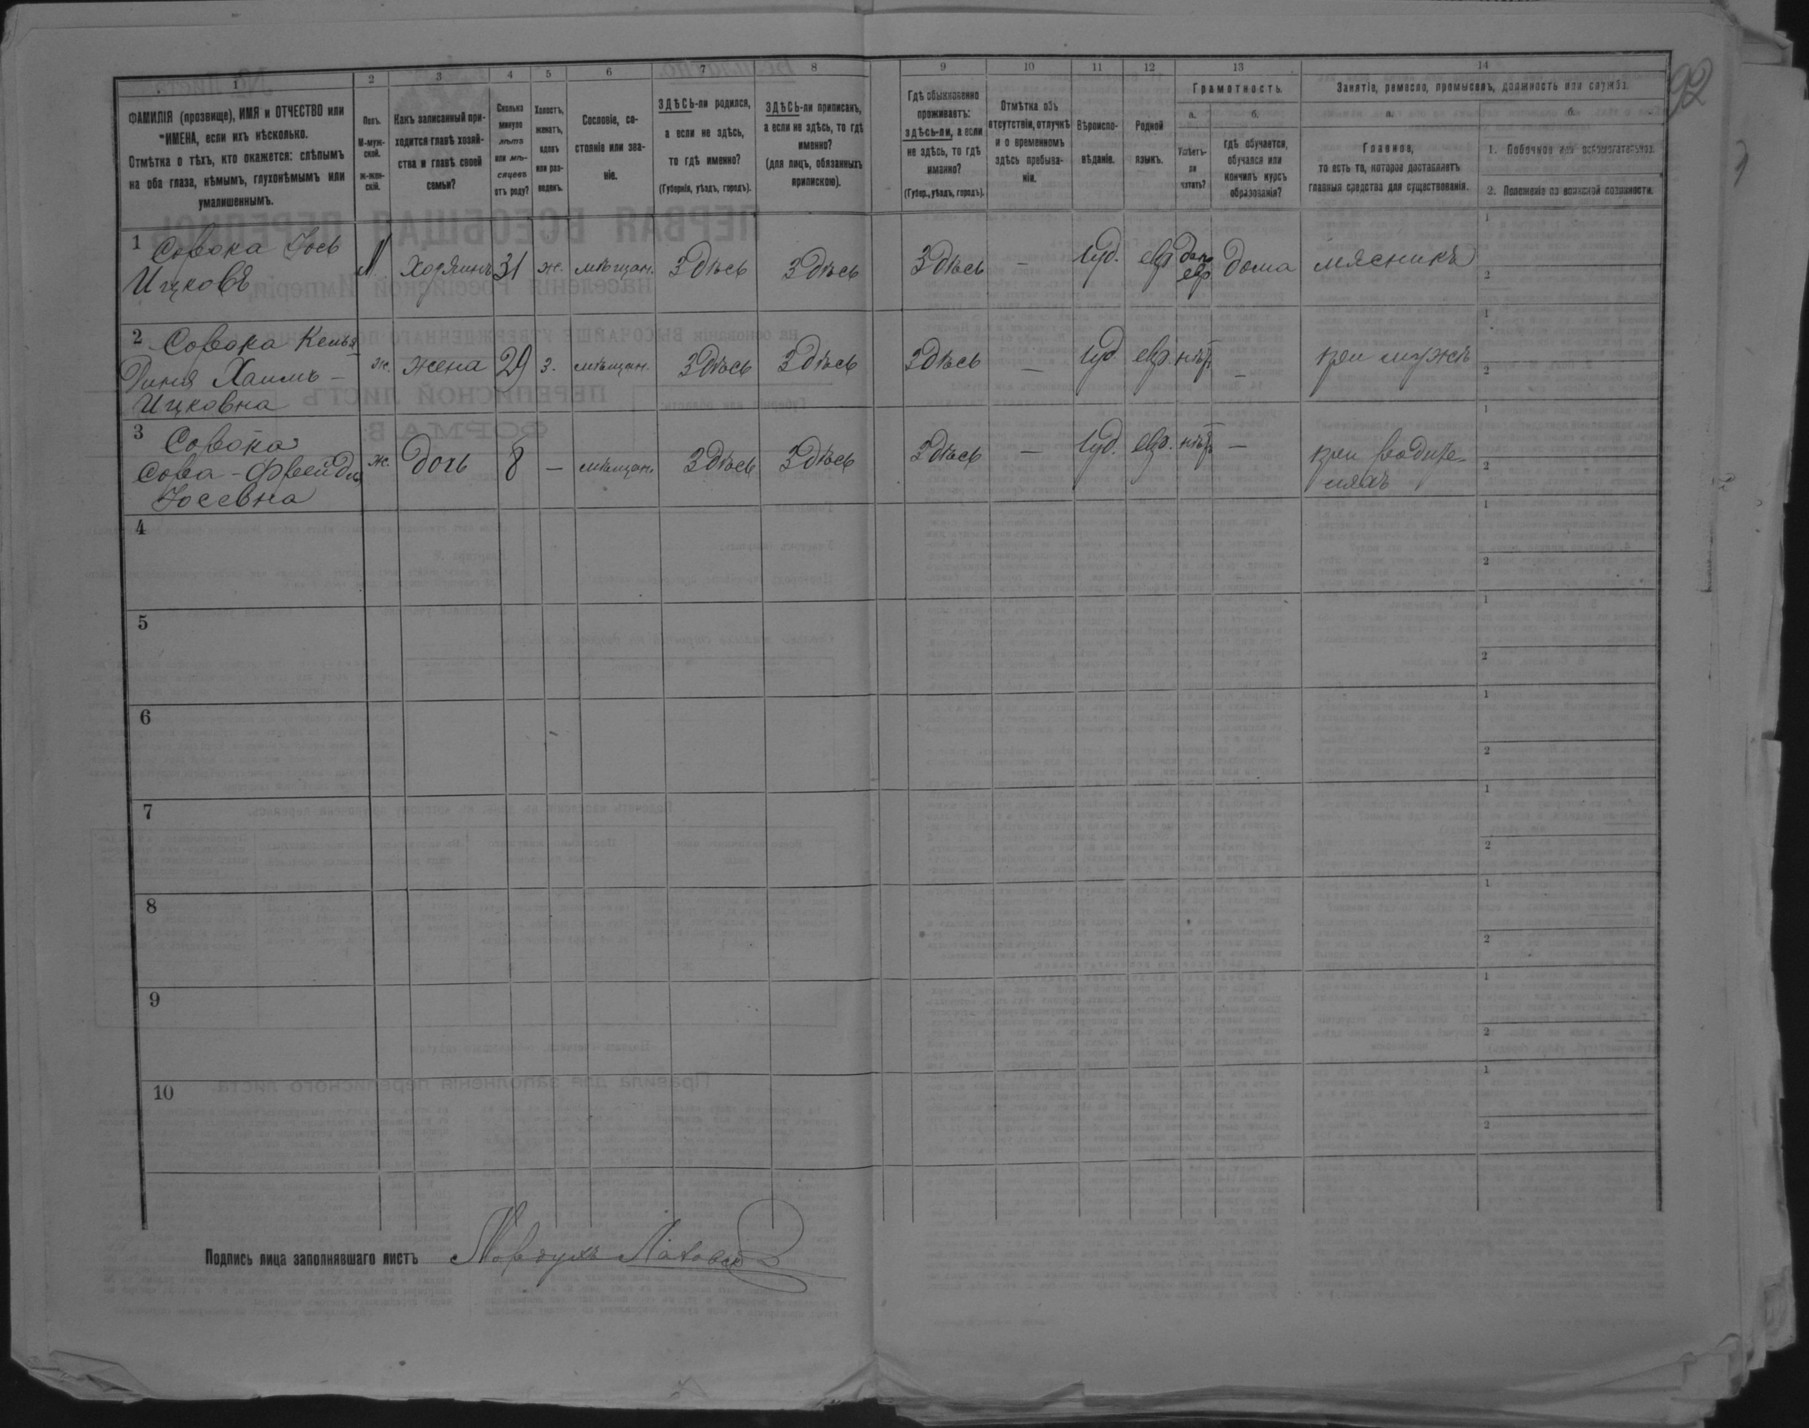 92
1
ФАМИЛІЯ (прозвище), ИМЯ и ОТЧЕСТВО или
ИМЕНА, если ихъ нѣсколько.
Отмѣтка о тѣхъ, кто окажется: слѣпымъ
на оба глаза, нѣмымъ, глухонѣмымъ или
умалишеннымъ.
2
Полъ.
М-муж-
ской.
ж-жен-
скій.
3
Какъ записанный при-
ходится главѣ хозяй-
ства и главѣ своей
семьи?
4
Сколько
минуло
лѣтъ
или мѣ-
сяцевъ
отъ роду?
5
Холостъ,
женатъ,
вдовъ
или раз-
веденъ.
6
Сословіе, со-
стояніе или зва-
ніе.
7
ЗДѢСЬ-ли родился,
а если не здѣсь,
то гдѣ именно?
(Губернія, уѣздъ, городъ).
8
ЗДѢСЬ-ли приписанъ,
а если не здѣсь, то гдѣ
именно?
(для лицъ, обязанныхъ
припискою).
9
Гдѣ обыкновенно
проживаетъ:
здѣсь-ли, а если
не здѣсь, то гдѣ
именно?
(Губер., уѣздъ, городъ).
10
Отмѣтка объ
отсутствіи, отлучкѣ
и о временномъ
здѣсь пребыва-
ніи.
11
Вѣроиспо-
вѣданіе.
12
Родной
языкъ.
13
Грамотность.
а.
Умѣетъ-
ли
читать?
б.
Гдѣ обучается,
обучался или
кончилъ курсъ
образованія?
14
Занятіе, ремесло, промыселъ, должность или служба.
а.
Главное,
то есть то, которое доставляетъ
главныя средства для существованія.
б.
1. Побочное или вспомогательное.
2. Положеніе по воинской повинности.
1 Сорока Іось
Ицковъ
М Хозяинъ 31 ж. мѣщан. Здѣсь Здѣсь Здѣсь — Іуд. евр. дома мясникъ
1
2
2 Сорока
Диня Хаимъ-
Ицковна
ж. жена 29 з. мѣщан. Здѣсь Здѣсь Здѣсь — Іуд. евр. нѣтъ — при мужѣ
1
2
3 Сорока
Сора-Фрейда
Іосевна
ж. дочь 8 — мѣщан. Здѣсь Здѣсь Здѣсь — Іуд. евр. нѣтъ — при родите-
ляхъ
1
2
4
1
2
5
1
2
6
1
2
7
1
2
8
1
2
9
1
2
10
1
2
Подпись лица заполнявшаго листъ